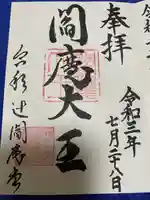 奉拝
令和三年
七月二十八日
閻魔大王
六道之辻閻魔堂